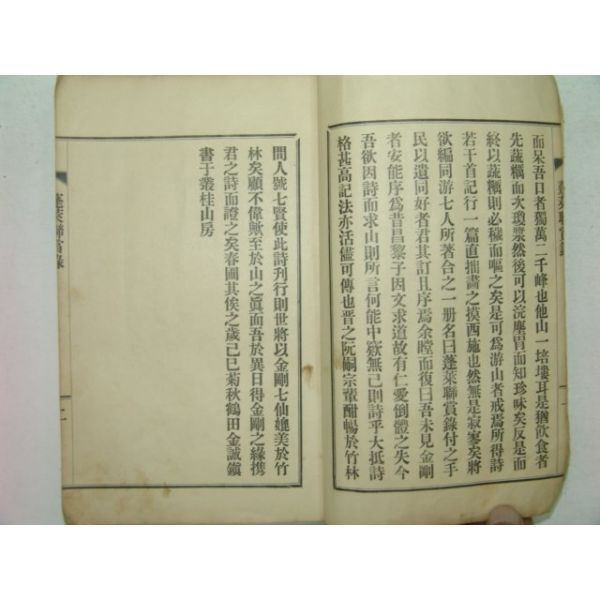 而呆吾目者獨萬二千峰也他山一培塿耳是猶飮食者
先蔬糲而次瓊漿然後可以浣塵胃而知珍味矣反是而
終以蔬糲則必穢而嘔之矣是可爲游山者戒焉所得詩
若干首記行一篇直拙畵之摸西施也然無是寂寥矣將
欲編同游七人所著合之一册名曰蓬萊聯賞錄付之手
民以遺同好者君其訂且序焉余瞠而復曰吾未見金剛
者安能序爲昔昌黎子因文求道故有仁愛倒體之失今
吾欲因詩而求山則所言何能中竅無已則詩乎大抵詩
格甚高記法亦活儘可傳也晋之阮嗣宗輩酣暢於竹林
間人號七賢使此詩刊行則世將以金剛七仙媲美於竹
林矣顧不偉歟至於山之眞面吾於異日得金剛之緣携
君之詩而證之矣春圃其俟之歲己巳菊秋鶴田金誠鎭
書于叢桂山房
蓬萊聯賞錄
二